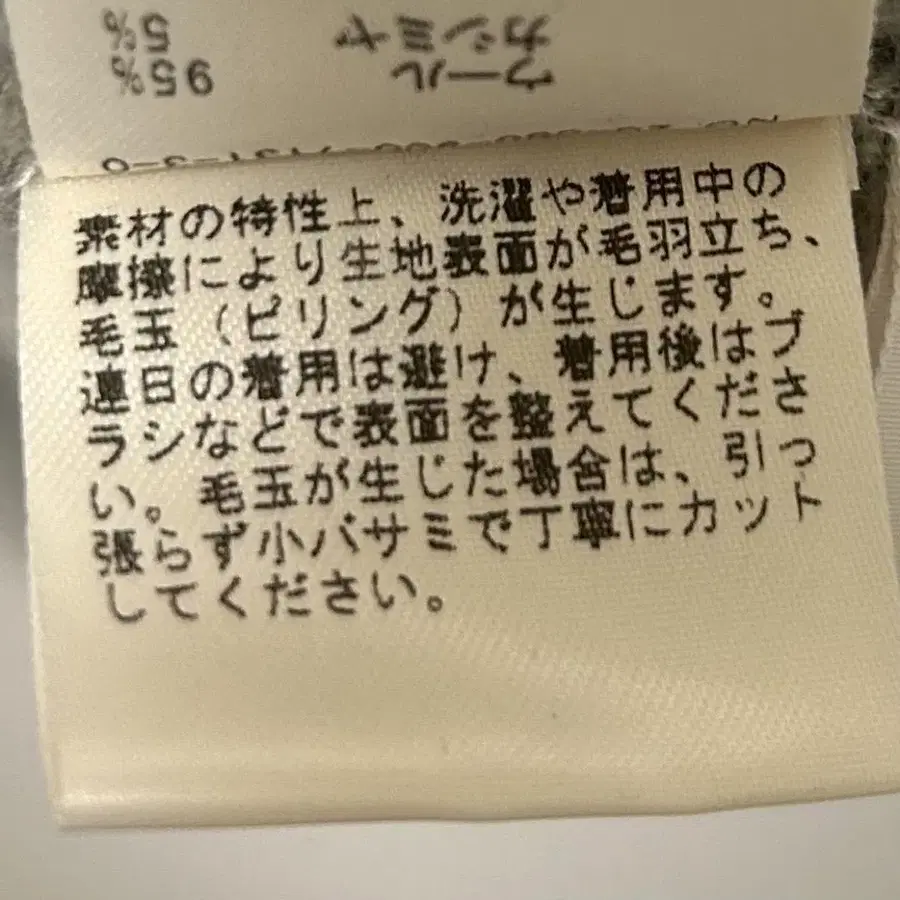 ウール 95%
カシミヤ 5%
素材の特性上、洗濯や着用中の
摩擦により生地表面が毛羽立ち、
毛玉（ピリング）が生じます。
連日の着用は避け、着用後はブ
ラシなどで表面を整えてくださ
い。毛玉が生じた場合は、引っ
張らず小バサミで丁寧にカット
してください。